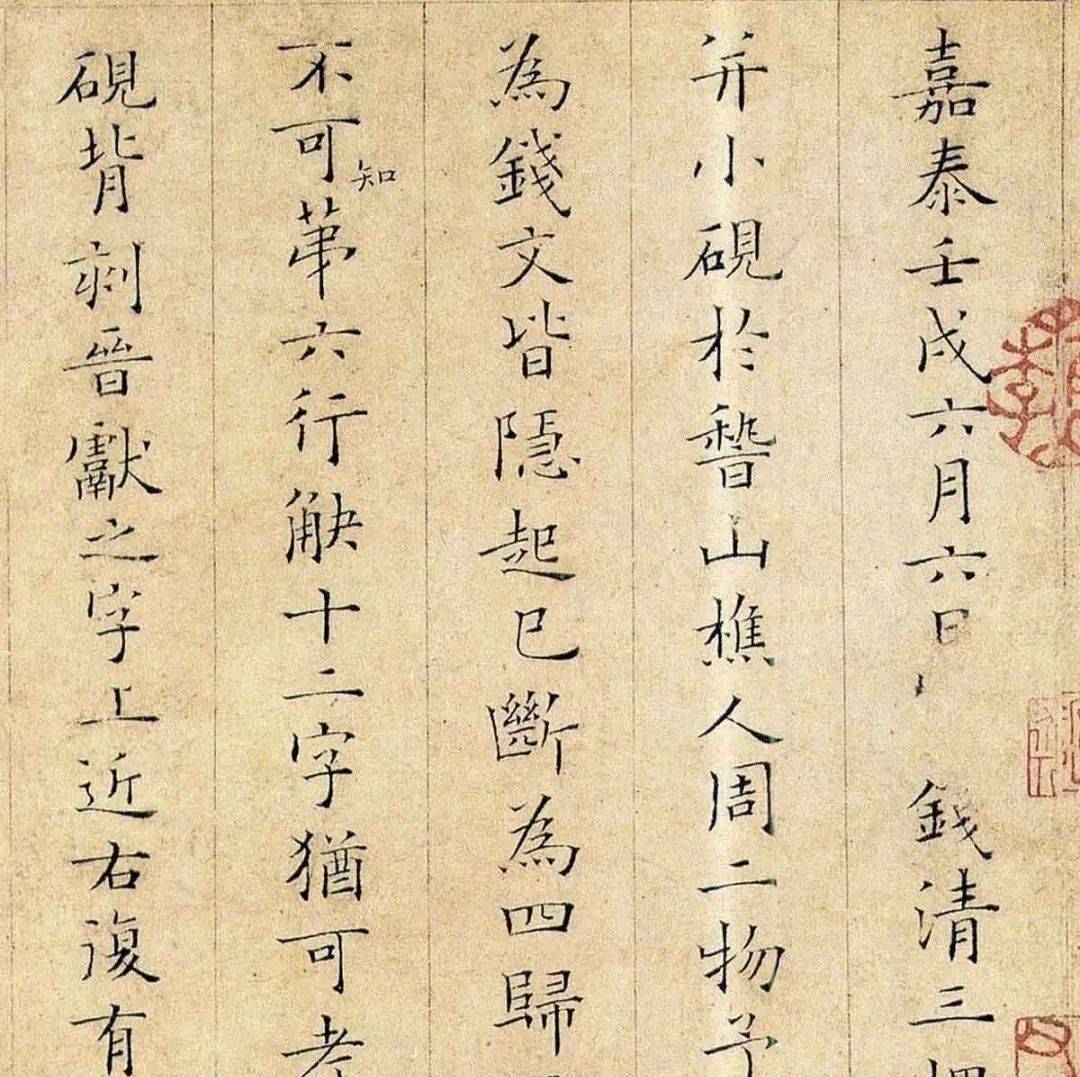 嘉泰壬戌六月六日 錢清三
并小硯於稽山樵人周二物予
為錢文皆隱起已斷為四歸
不可知苐六行觖十二字猶可考
硯背刻晉獻之字上近右復有